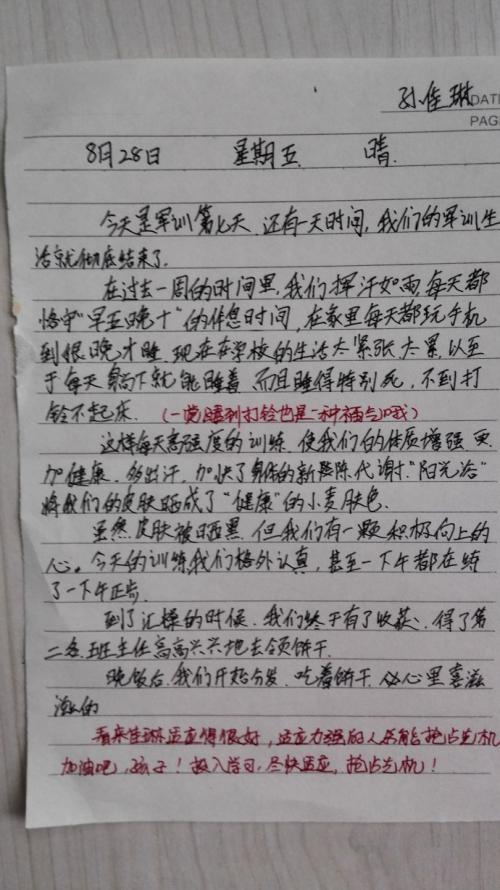 孙佳琳 DATE
PAG
8月28日 星期五 晴
今天是军训第七天,还有一天时间,我们的军训生
活就彻底结束了。
在过去一周的时间里,我们挥汗如雨,每天都
恪守“早五晚十”的作息时间,在家里每天都玩手机
到很晚才睡,现在在学校的生活太紧张,太累,以至
于每天躺下就能睡着,而且睡得特别死,不到打
铃不起床。(一觉睡到打铃也是一种福气哦)
这样每天高强度的训练,使我们的体质增强,更
加健康,多出汗,加快了身体的新陈代谢,“阳光浴”
将我们的皮肤晒成了“健康”的小麦肤色。
虽然皮肤被晒黑,但我们有一颗积极向上的
心。今天的训练我们格外认真,甚至一下午都在练
了一下午正步
到了汇操的时候,我们终于有了收获,得了第
二名,班主任高高兴兴地去领饼干。
晚饭后,我们开始分发,吃着饼干,心里喜滋
滋的
看来佳琳适应得很好,适应力强的人才能抢占先机
加油吧,孩子!投入学习,尽快适应,抢占先机!